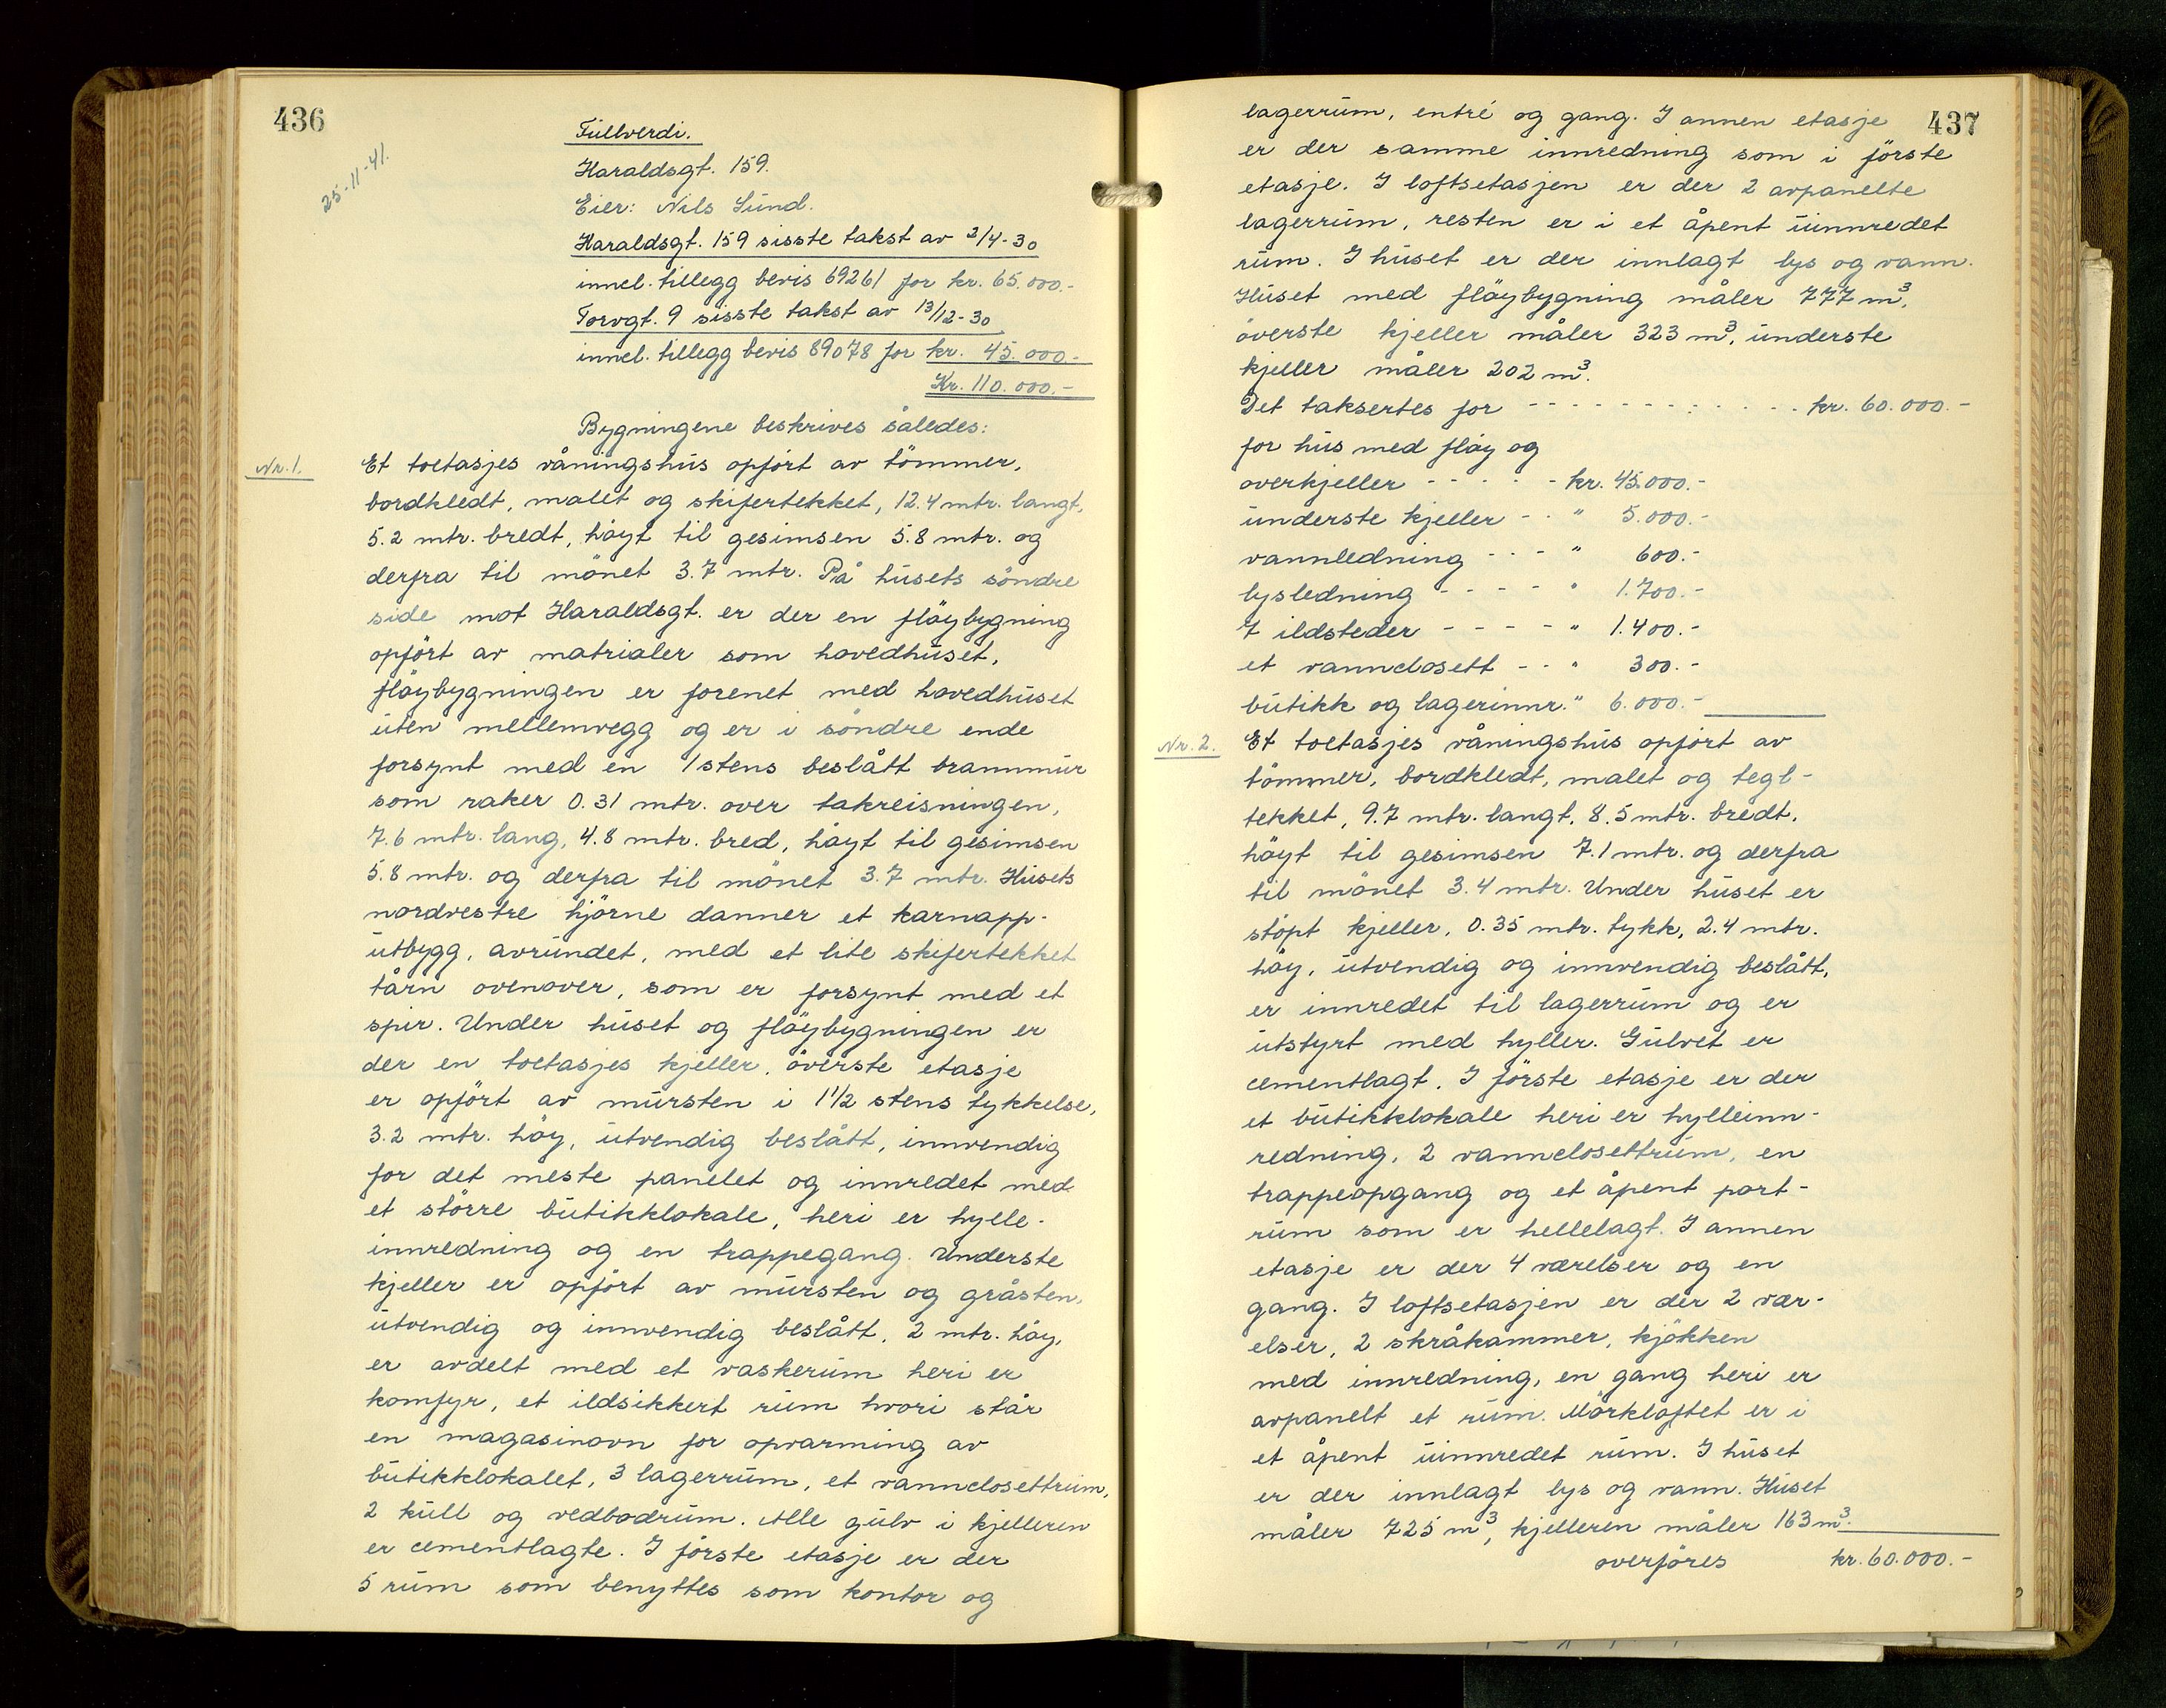 436
25-11-41.
Fullverdi.
Haraldsgt. 159.
Eier: Nils Sund.
Haraldsgt. 159 sisste takst av 2/4-30
innel. tillegg bevis 69261 for kr. 65.000.-
Torvgt. 9 sisste takst av 13/12-30
innel. tillegg bevis 89078 for kr. 45.000.-
Kr. 110.000.-
Bygningene beskrives således:
Nr. 1. Et toetasjes våningshus opført av tömmer,
bordkledt, malet og skifertekket, 12.4 mtr. langt,
5.2 mtr. bredt, höyt til gesimsen 5.8 mtr. og
derfra til mönet 3.7 mtr. På husets söndre
side mot Haraldsgt. er der en flöybygning
opfört av matrialer som hovedhuset,
flöybygningen er forenet med hovedhuset
uten mellemvegg og er i söndre ende
forsynt med en 1 stens beslått brannmur
som raker 0.31 mtr. over takreisningen,
7.6 mtr. lang, 4.8 mtr. bred, höyt til gesimsen
5.8 mtr. og derfra til mönet 3.7 mtr. Husets
nordvestre hjörne danner et karnapp-
utbygg, avrundet, med et lite skifertekket
tårn ovenover, som er forsynt med et
spir. Under huset og flöybygningen er
der en toetasjes kjeller, överste etasje
er opfört av mursten i 1 1/2 stens tykkelse,
3.2 mtr. höy, utvendig beslått, innvendig
for det meste panelet og innredet med
et större butikklokale, heri er hylle-
innredning og en trappegang. Underste
kjeller er opfört av mursten og gråsten,
utvendig og innvendig beslått, 2 mtr. höy,
er avdelt med et vaskerum heri er
komfyr, et ildsikkert rum hvori står
en magasinovn for opvarming av
butikklokalet, 3 lagerrum, et vannclosettrum,
2 kull og vedbodrum. Alle gulv i kjelleren
er cementlagte. I förste etasje er der
5 rum som benyttes som kontor og
437
lagerrum, entré og gang. I annen etasje
er der samme innredning som i förste
etasje. I loftsetasjen er der 2 avpanelte
lagerrum, resten er i et åpent uinnredet
rum. I huset er der innlagt lys og vann.
Huset med flöybygning måler 777 m³,
överste kjeller måler 323 m³, underste
kjeller måler 202 m³.
Det taksertes for - - - - - - - - - - - - kr. 60.000.-
for hus med flöy og
overkjeller - - - - - kr. 45.000.-
underste kjeller - - " 5.000.-
vannledning - - - " 600.-
lysledning - - - - " 1.700.-
7 ildsteder - - - - " 1.400.-
et vannclosett - - " 300.-
butikk og lagerinnr. " 6.000.-
Nr. 2. Et toetasjes våningshus opfört av
tömmer, bordkledt, malet og tegl-
tekket, 9.7 mtr. langt, 8.5 mtr. bredt,
höyt til gesimsen 7.1 mtr. og derfra
til mönet 3.4 mtr. Under huset er
stöpt kjeller, 0.35 mtr. tykk, 2.4 mtr.
höy, utvendig og innvendig beslått,
er innredet til lagerrum og er
utstyrt med hyller. Gulvet er
cementlagt. I förste etasje er der
et butikklokale heri er hylleinn-
redning, 2 vannclosettrum, en
trappeopgang og et åpent port-
rum som er hellelagt. I annen
etasje er der 4 værelser og en
gang. I loftsetasjen er der 2 vær-
elser, 2 skråkammer, kjökken
med innredning, en gang heri er
avpanelt et rum. Mörkloftet er i
et åpent uinnredet rum. I huset
er der innlagt lys og vann. Huset
måler 725 m³, kjelleren måler 163 m³.
overföres kr. 60.000.-